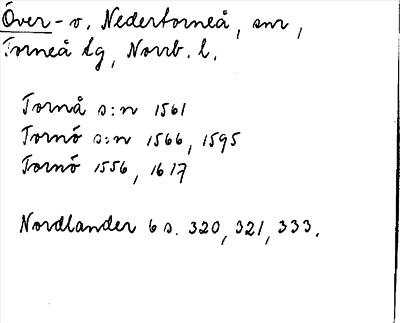 Över- o. Nedertorneå, snr,
Torneå lg, Norrb. l.
Tornå s:n 1561
Tornö s:n 1566, 1595
Tornö 1556, 1617
Nordlander 6 s. 320, 321, 333.